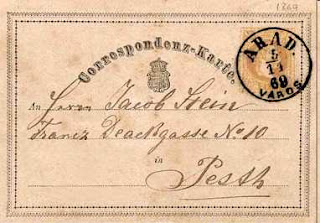 1869
Correspondenz-Karte.
ARAD
5
11
69
VÁROS
An Herrn Jacob Stein
Franz Deackgasse No 10
in
Pesth